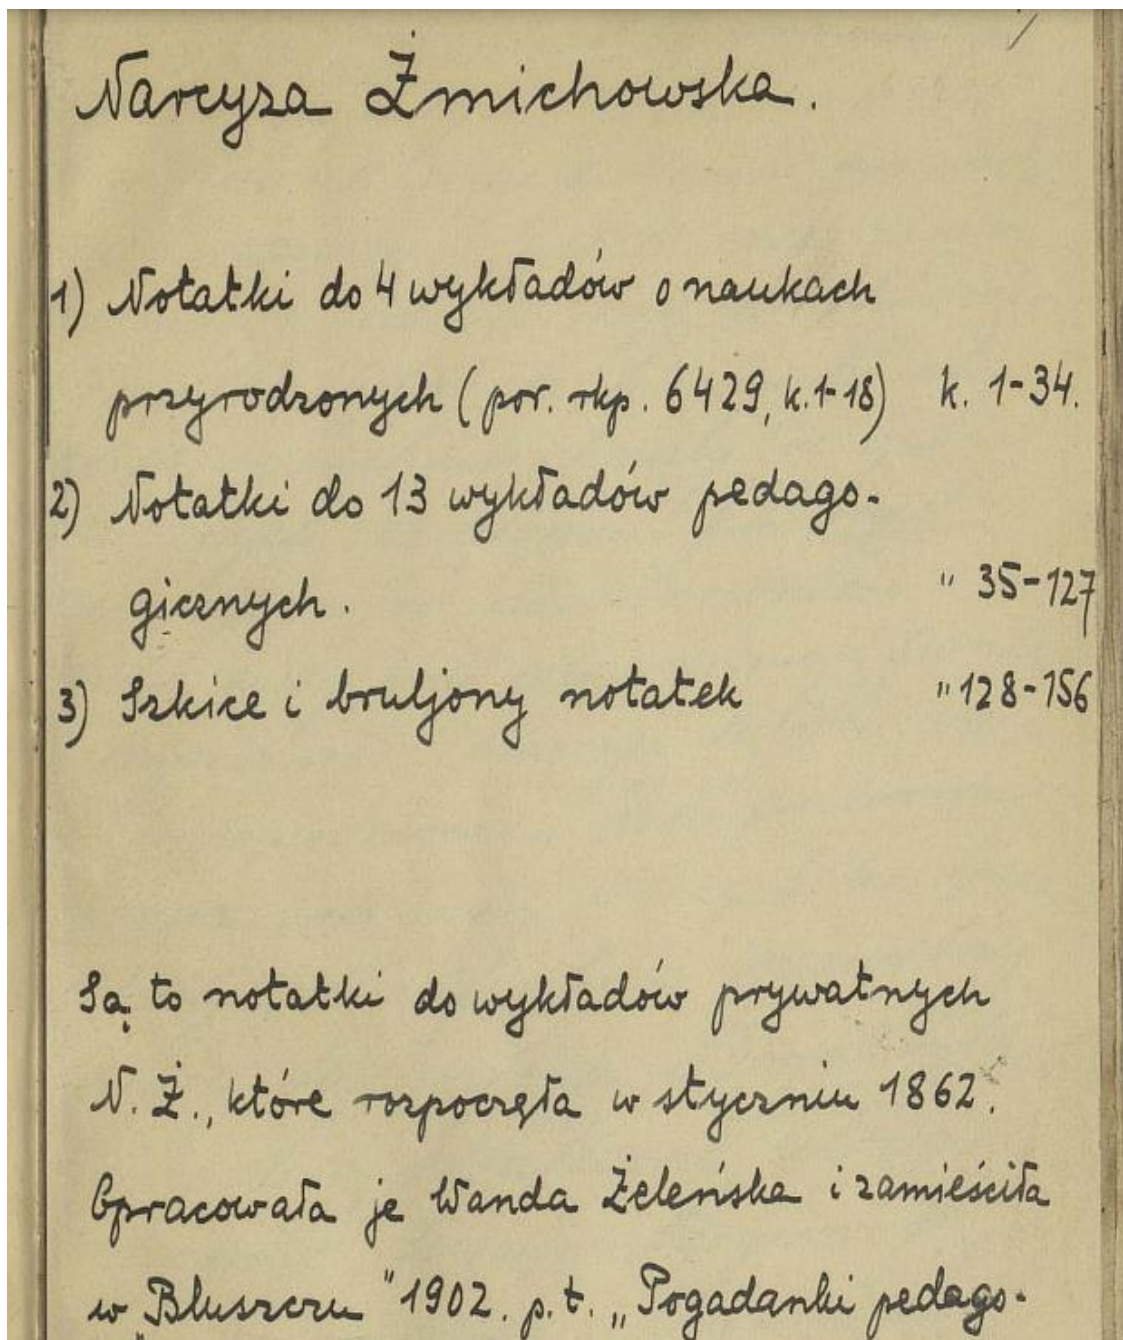 Narcyza Żmichowska.
1) Notatki do 4 wykładów o naukach
przyrodzonych (por. rkp. 6429, k. 1-18) k. 1-34.
2) Notatki do 13 wykładów pedago-
gicznych. " 35-127
3) Szkice i bruljony notatek " 128-156
Są to notatki do wykładów prywatnych
N. Ż., które rozpoczęła w styczniu 1862.
Opracowała je Wanda Żeleńska i zamieściła
w „Bluszczu" 1902. p. t. „Pogadanki pedago-